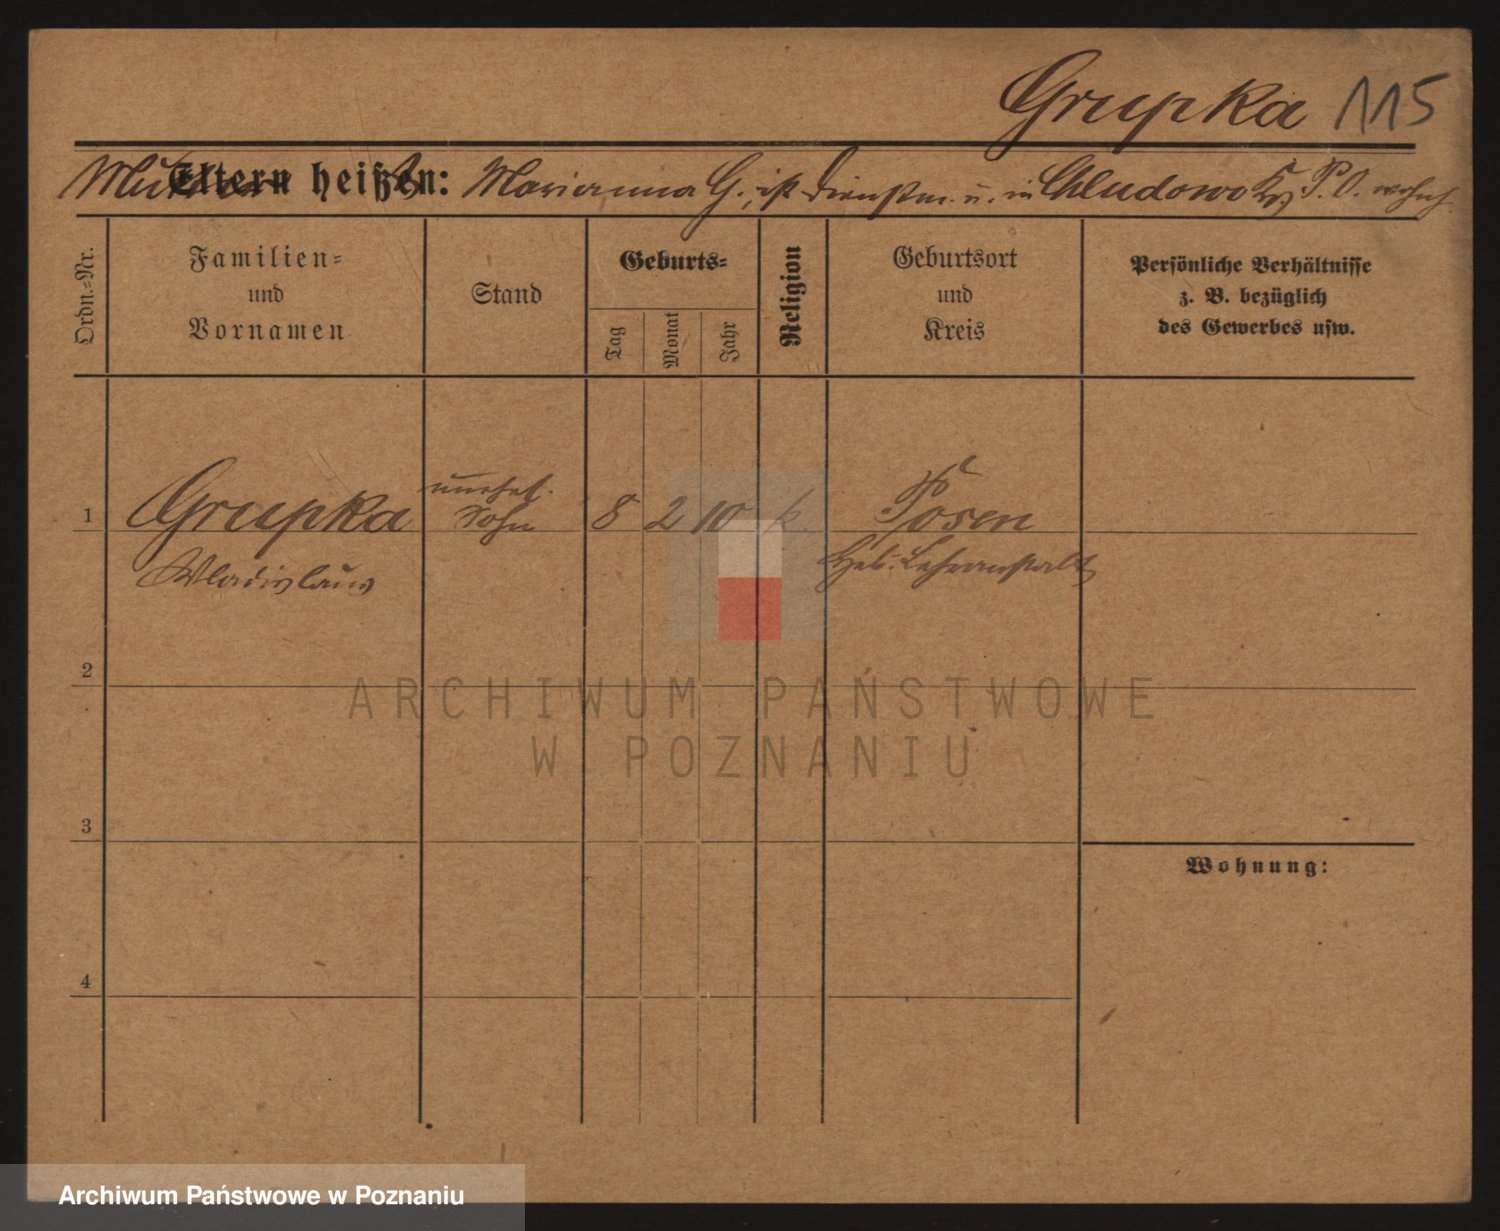 Grupka 115
Mutter Eltern heißt heißen: Marianna G., ist Dienstm. u. in Chludowo Krs P. O. wohnh.
Ordn.=Nr.
Familien=
und
Vornamen
Stand
Geburts=
Tag
Monat
Jahr
Religion
Geburtsort
und
Kreis
Persönliche Verhältnisse
z. B. bezüglich
des Gewerbes usw.
1 Grupka unehel. Sohn 8 2 10 k. Posen
Wladislaus Heb. Lehranstalt
2
3
4
Wohnung:
ARCHIWUM PAŃSTWOWE
W POZNANIU
Archiwum Państwowe w Poznaniu